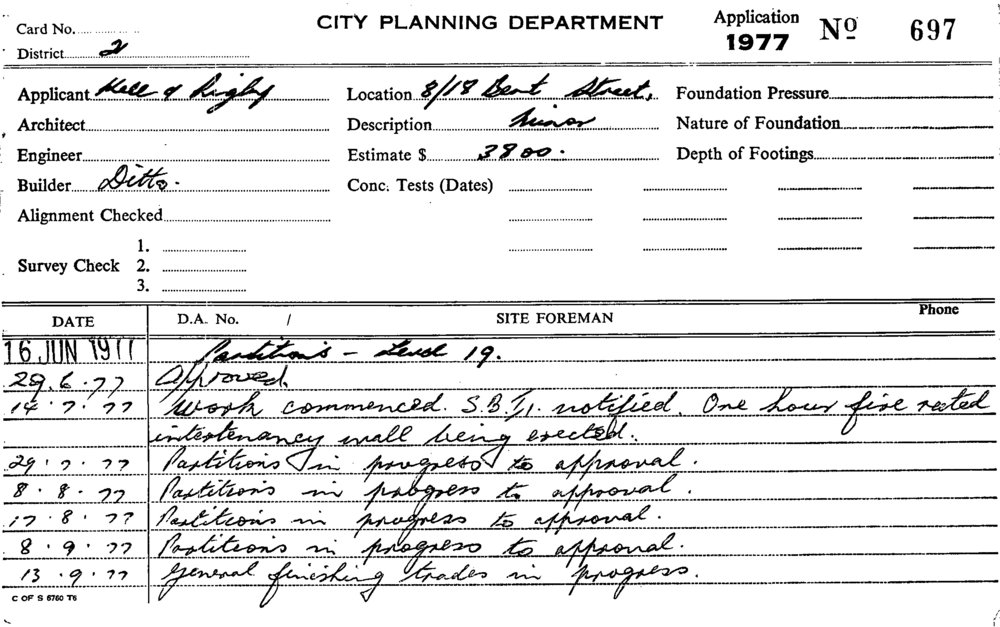 CITY PLANNING DEPARTMENT
Application 1977 Nº 697
Card No.
District 2
Applicant Kell & Rigby
Location 8/18 Bent Street,
Foundation Pressure
Architect
Description Minor
Nature of Foundation
Engineer
Estimate $ 3800.
Depth of Footings
Builder Ditto.
Conc. Tests (Dates)
Alignment Checked
Survey Check 1. 2. 3.
DATE D.A. No. / SITE FOREMAN Phone
16 JUN 1977 Partitions - Level 19.
29.6.77 Approved.
14.7.77 Work commenced. notified. One hour fire rated
intertenancy wall being erected.
29.7.77 Partitions in progress to approval.
8.8.77 Partitions in progress to approval.
17.8.77 Partitions in progress to approval.
8.9.77 Partitions in progress to approval.
13.9.77 General finishing trades in progress.
C OF S 6760 T6